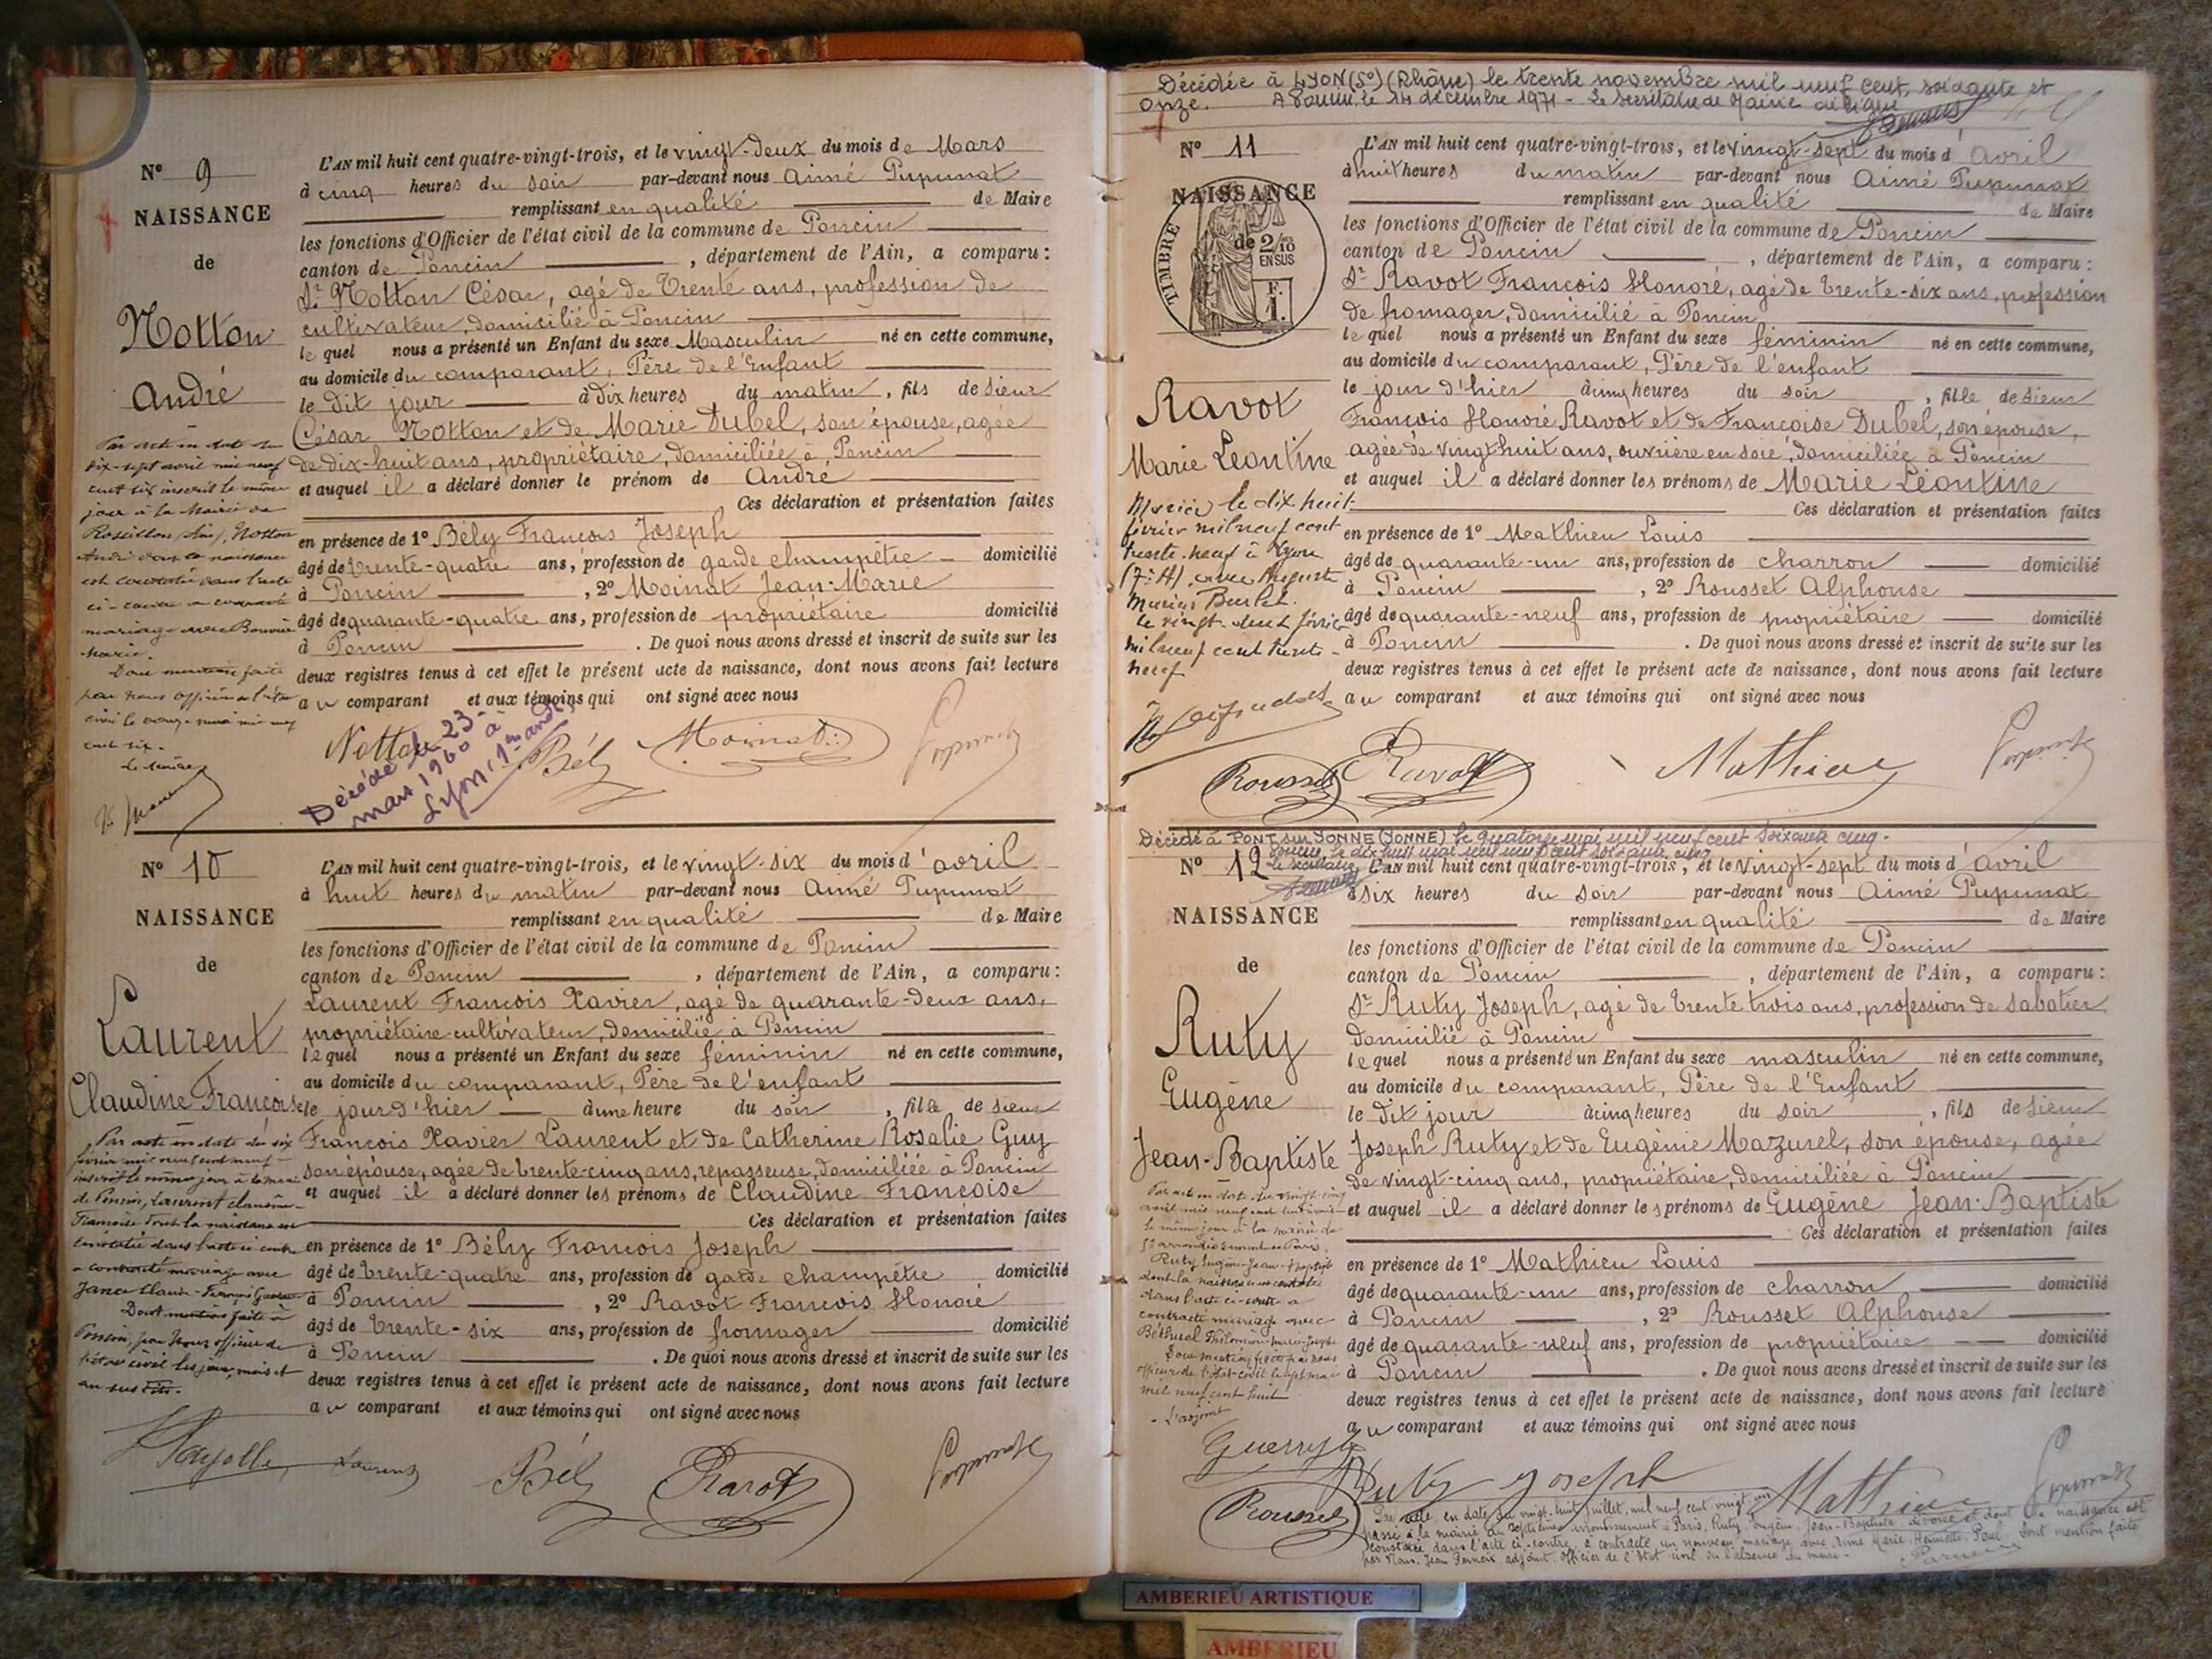 N° 9
NAISSANCE
de
Notton
André
L'AN mil huit cent quatre-vingt-trois, et le vingt-deux du mois de Mars
à cinq heures du soir par-devant nous Aimé Pupunat
remplissant en qualité de Maire
les fonctions d'Officier de l'état civil de la commune de Poncin
canton de Poncin, département de l'Ain, a comparu:
Sr Notton César, agé de Trente ans, profession de
cultivateur, domicilié à Poncin
lequel nous a présenté un Enfant du sexe Masculin né en cette commune,
au domicile du comparant, Père de l'Enfant
le dit jour à dix heures du matin, fils de Sieur
César Notton et de Marie Dubel, son épouse, agée
de dix-huit ans, propriétaire, domiciliée à Poncin
et auquel il a déclaré donner le prénom de André
Ces déclaration et présentation faites
en présence de 1° Bély François Joseph
âgé de trente-quatre ans, profession de garde champêtre domicilié
à Poncin, 2° Moinat Jean-Marie
âgé de quarante-quatre ans, profession de propriétaire domicilié
à Poncin. De quoi nous avons dressé et inscrit de suite sur les
deux registres tenus à cet effet le présent acte de naissance, dont nous avons fait lecture
au comparant et aux témoins qui ont signé avec nous
Par acte en date du
dix-sept avril mil neuf
cent six inscrit le même
jour à la Mairie de
Rossillon (Ain), Notton
André dont la naissance
est constatée dans l'acte
ci-contre a contracté
mariage avec Bouvier
Marie.
Dont mention faite
par nous officier de l'état
civil
cent six.
Le Maire
Notton Bély Moinat Pupunat
Décédé le 23
mars 1960 à
Lyon, 1er arrondt
N° 10
NAISSANCE
de
Laurent
Claudine Françoise
L'AN mil huit cent quatre-vingt-trois, et le vingt-six du mois d'avril
à huit heures du matin par-devant nous Aimé Pupunat
remplissant en qualité de Maire
les fonctions d'Officier de l'état civil de la commune de Poncin
canton de Poncin, département de l'Ain, a comparu:
Laurent François Xavier, agé de quarante-deux ans,
propriétaire-cultivateur, domicilié à Poncin
lequel nous a présenté un Enfant du sexe féminin né en cette commune,
au domicile du comparant, Père de l'enfant
le jour d'hier à une heure du soir, fille de Sieur
François Xavier Laurent et de Catherine Rosalie Guy
son épouse, agée de trente-cinq ans, repasseuse, domiciliée à Poncin
et auquel il a déclaré donner les prénoms de Claudine Françoise
Ces déclaration et présentation faites
en présence de 1° Bély François Joseph
âgé de trente-quatre ans, profession de garde champêtre domicilié
à Poncin, 2° Ravot François Honoré
âgé de trente-six ans, profession de fromager domicilié
à Poncin. De quoi nous avons dressé et inscrit de suite sur les
deux registres tenus à cet effet le présent acte de naissance, dont nous avons fait lecture
au comparant et aux témoins qui ont signé avec nous
Par acte en date du six
février mil neuf cent neuf
inscrit le même jour à la mairie
de Poncin, Laurent Claudine
Françoise dont la naissance est
constatée dans l'acte ci-contre
a contracté mariage avec
Janca Claude
Dont mention faite à
Poncin, par Nous officier de
l'état civil les jour, mois et
an sus dits.
Laurent Bély Ravot Pupunat
Décédée à LYON (5e) (Rhône) le trente novembre mil neuf cent soixante et
onze. A Poncin, le 14 décembre 1971 - Le Secrétaire de Mairie délégué
N° 11
NAISSANCE
TIMBRE
de 2/10
EN SUS
F.
1.
Ravot
Marie Léontine
L'AN mil huit cent quatre-vingt-trois, et le vingt-sept du mois d'avril
à huit heures du matin par-devant nous Aimé Pupunat
remplissant en qualité de Maire
les fonctions d'Officier de l'état civil de la commune de Poncin
canton de Poncin, département de l'Ain, a comparu:
Sr Ravot François Honoré, agé de trente-six ans, profession
de fromager, domicilié à Poncin
lequel nous a présenté un Enfant du sexe féminin né en cette commune,
au domicile du comparant, Père de l'enfant
le jour d'hier à cinq heures du soir, fille de Sieur
François Honoré Ravot et de Françoise Dubel, son épouse,
agée de vingt huit ans, ouvrière en soie, domiciliée à Poncin
et auquel il a déclaré donner les prénoms de Marie Léontine
Ces déclaration et présentation faites
en présence de 1° Mathieu Louis
âgé de quarante-un ans, profession de charron domicilié
à Poncin, 2° Rousset Alphonse
âgé de quarante-neuf ans, profession de propriétaire domicilié
à Poncin. De quoi nous avons dressé et inscrit de suite sur les
deux registres tenus à cet effet le présent acte de naissance, dont nous avons fait lecture
au comparant et aux témoins qui ont signé avec nous
Mariée le dix huit
février mil neuf cent
trente-neuf à Lyon
(7e A) avec Auguste
Marius Burlet.
Le vingt-deux février
mil neuf cent trente-
neuf
Rousset Ravot Mathieu Pupunat
Décédé à PONT sur YONNE (YONNE) le quatorze mai mil neuf cent soixante cinq.
Poncin, le dix huit mai mil neuf cent soixante cinq
Le Secrétaire
N° 12
NAISSANCE
de
Ruty
Eugène
Jean-Baptiste
L'AN mil huit cent quatre-vingt-trois, et le vingt-sept du mois d'avril
à six heures du soir par-devant nous Aimé Pupunat
remplissant en qualité de Maire
les fonctions d'Officier de l'état civil de la commune de Poncin
canton de Poncin, département de l'Ain, a comparu:
Sr Ruty Joseph, agé de trente trois ans, profession de sabotier
domicilié à Poncin
lequel nous a présenté un Enfant du sexe masculin né en cette commune,
au domicile du comparant, Père de l'Enfant
le dit jour à cinq heures du soir, fils de Sieur
Joseph Ruty et de Eugénie Mazurel, son épouse, agée
de vingt-cinq ans, propriétaire, domiciliée à Poncin
et auquel il a déclaré donner les prénoms de Eugène Jean-Baptiste
Ces déclaration et présentation faites
en présence de 1° Mathieu Louis
âgé de quarante-un ans, profession de charron domicilié
à Poncin, 2° Rousset Alphonse
âgé de quarante-neuf ans, profession de propriétaire domicilié
à Poncin. De quoi nous avons dressé et inscrit de suite sur les
deux registres tenus à cet effet le présent acte de naissance, dont nous avons fait lecture
au comparant et aux témoins qui ont signé avec nous
Par acte en date du vingt-cinq
avril mil neuf cent
le même jour à la mairie du
arrondissement de Paris,
Ruty Eugène-Jean-Baptiste
dont la naissance est constatée
dans l'acte ci-contre a
contracté mariage avec
Philomène-Marie-Josèphe
Dont mention faite par nous
officier de l'état-civil le sept mai
mil neuf cent huit.
L'adjoint
Ruty Joseph Mathieu Pupunat
Rousset
Par acte en date du vingt-huit juillet, mil neuf cent vingt un
passé à la mairie du septième arrondissement à Paris, Ruty, Eugène, Jean-Baptiste, divorcé et dont la naissance est
constatée dans l'acte ci-contre, a contracté un nouveau mariage avec Anne Marie Henriette Paul. Dont mention faite
par Nous, Jean adjoint, Officier de l'État civil en l'absence du maire.
AMBERIEU ARTISTIQUE
AMBERIEU